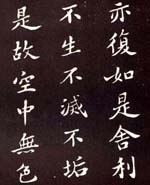 亦復如是舍利
不生不滅不垢
是故空中無色